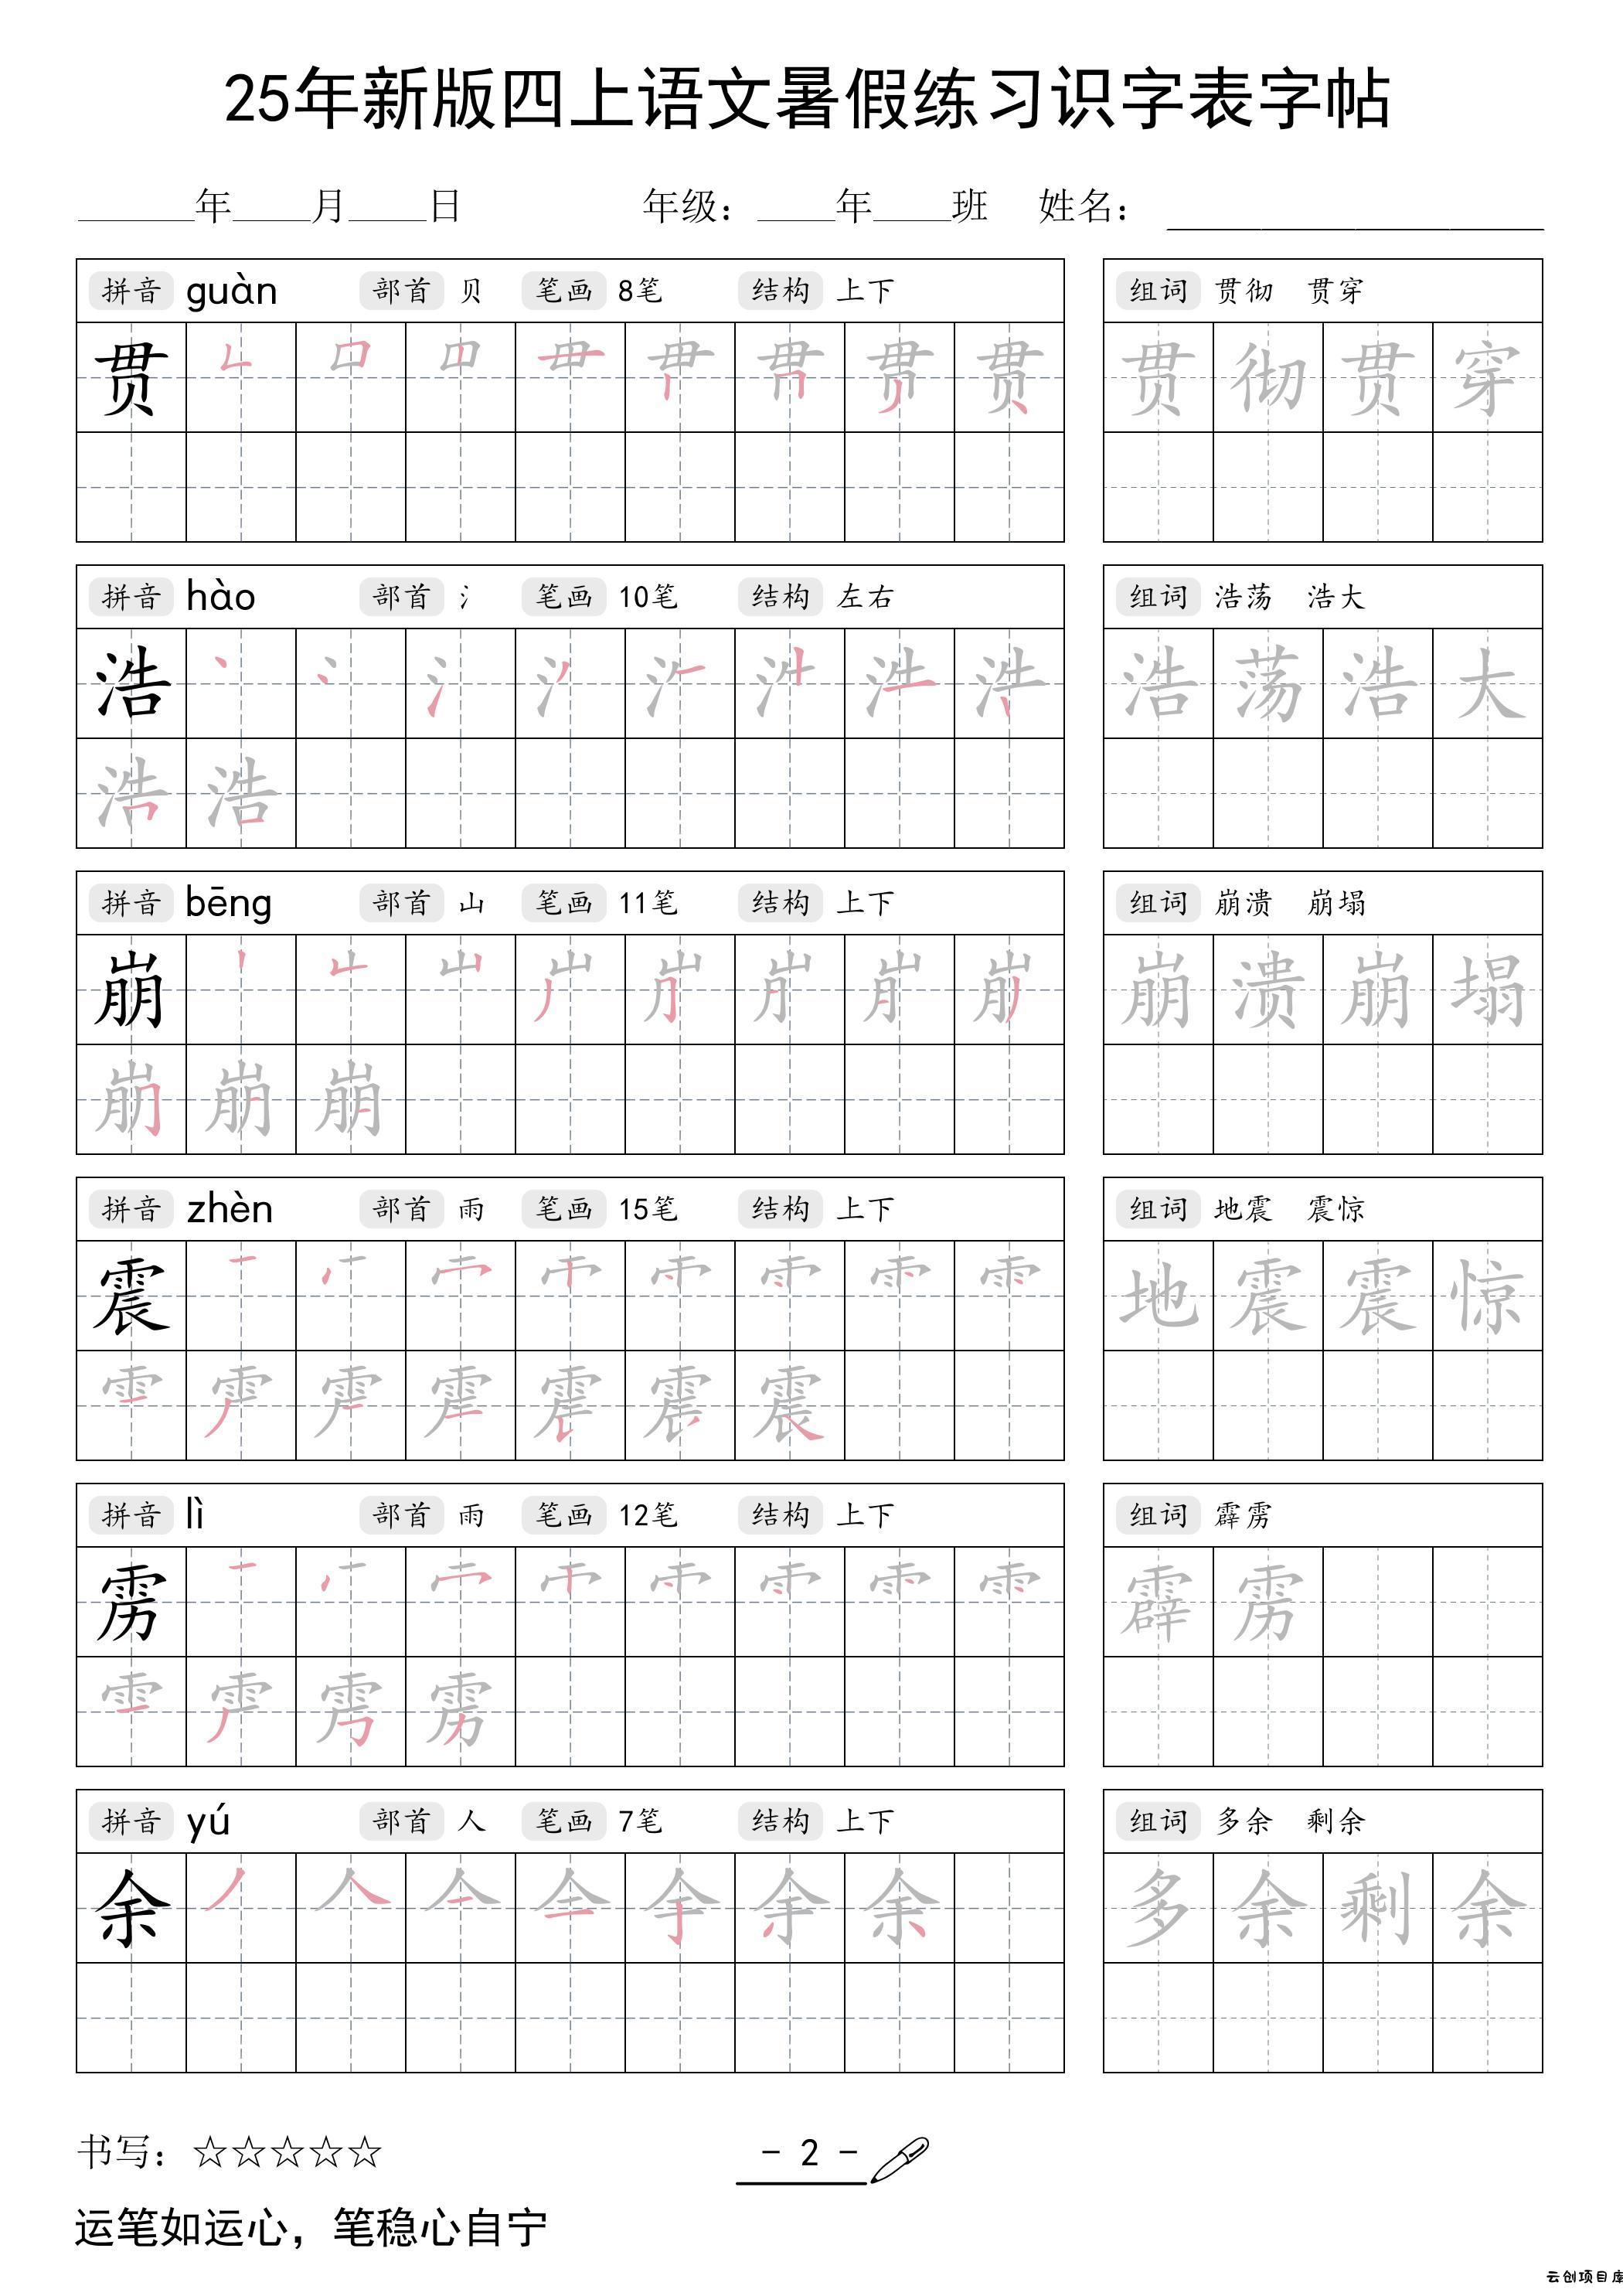 25年新版四上语文暑假练习识字表字帖
______年____月____日 年级：____年____班 姓名：____________________
拼音 guàn 部首 贝 笔画 8笔 结构 上下 组词 贯彻 贯穿
贯 贯 彻 贯 穿
拼音 hào 部首 氵 笔画 10笔 结构 左右 组词 浩荡 浩大
浩 浩 荡 浩 大
浩
拼音 bēng 部首 山 笔画 11笔 结构 上下 组词 崩溃 崩塌
崩 崩 溃 崩 塌
崩
拼音 zhèn 部首 雨 笔画 15笔 结构 上下 组词 地震 震惊
震 地 震 震 惊
震
拼音 lì 部首 雨 笔画 12笔 结构 上下 组词 霹雳
雳 霹 雳
雳
拼音 yú 部首 人 笔画 7笔 结构 上下 组词 多余 剩余
余 余 多 余 剩 余
书写：☆☆☆☆☆ - 2 -
运笔如运心，笔稳心自宁
云创项目库